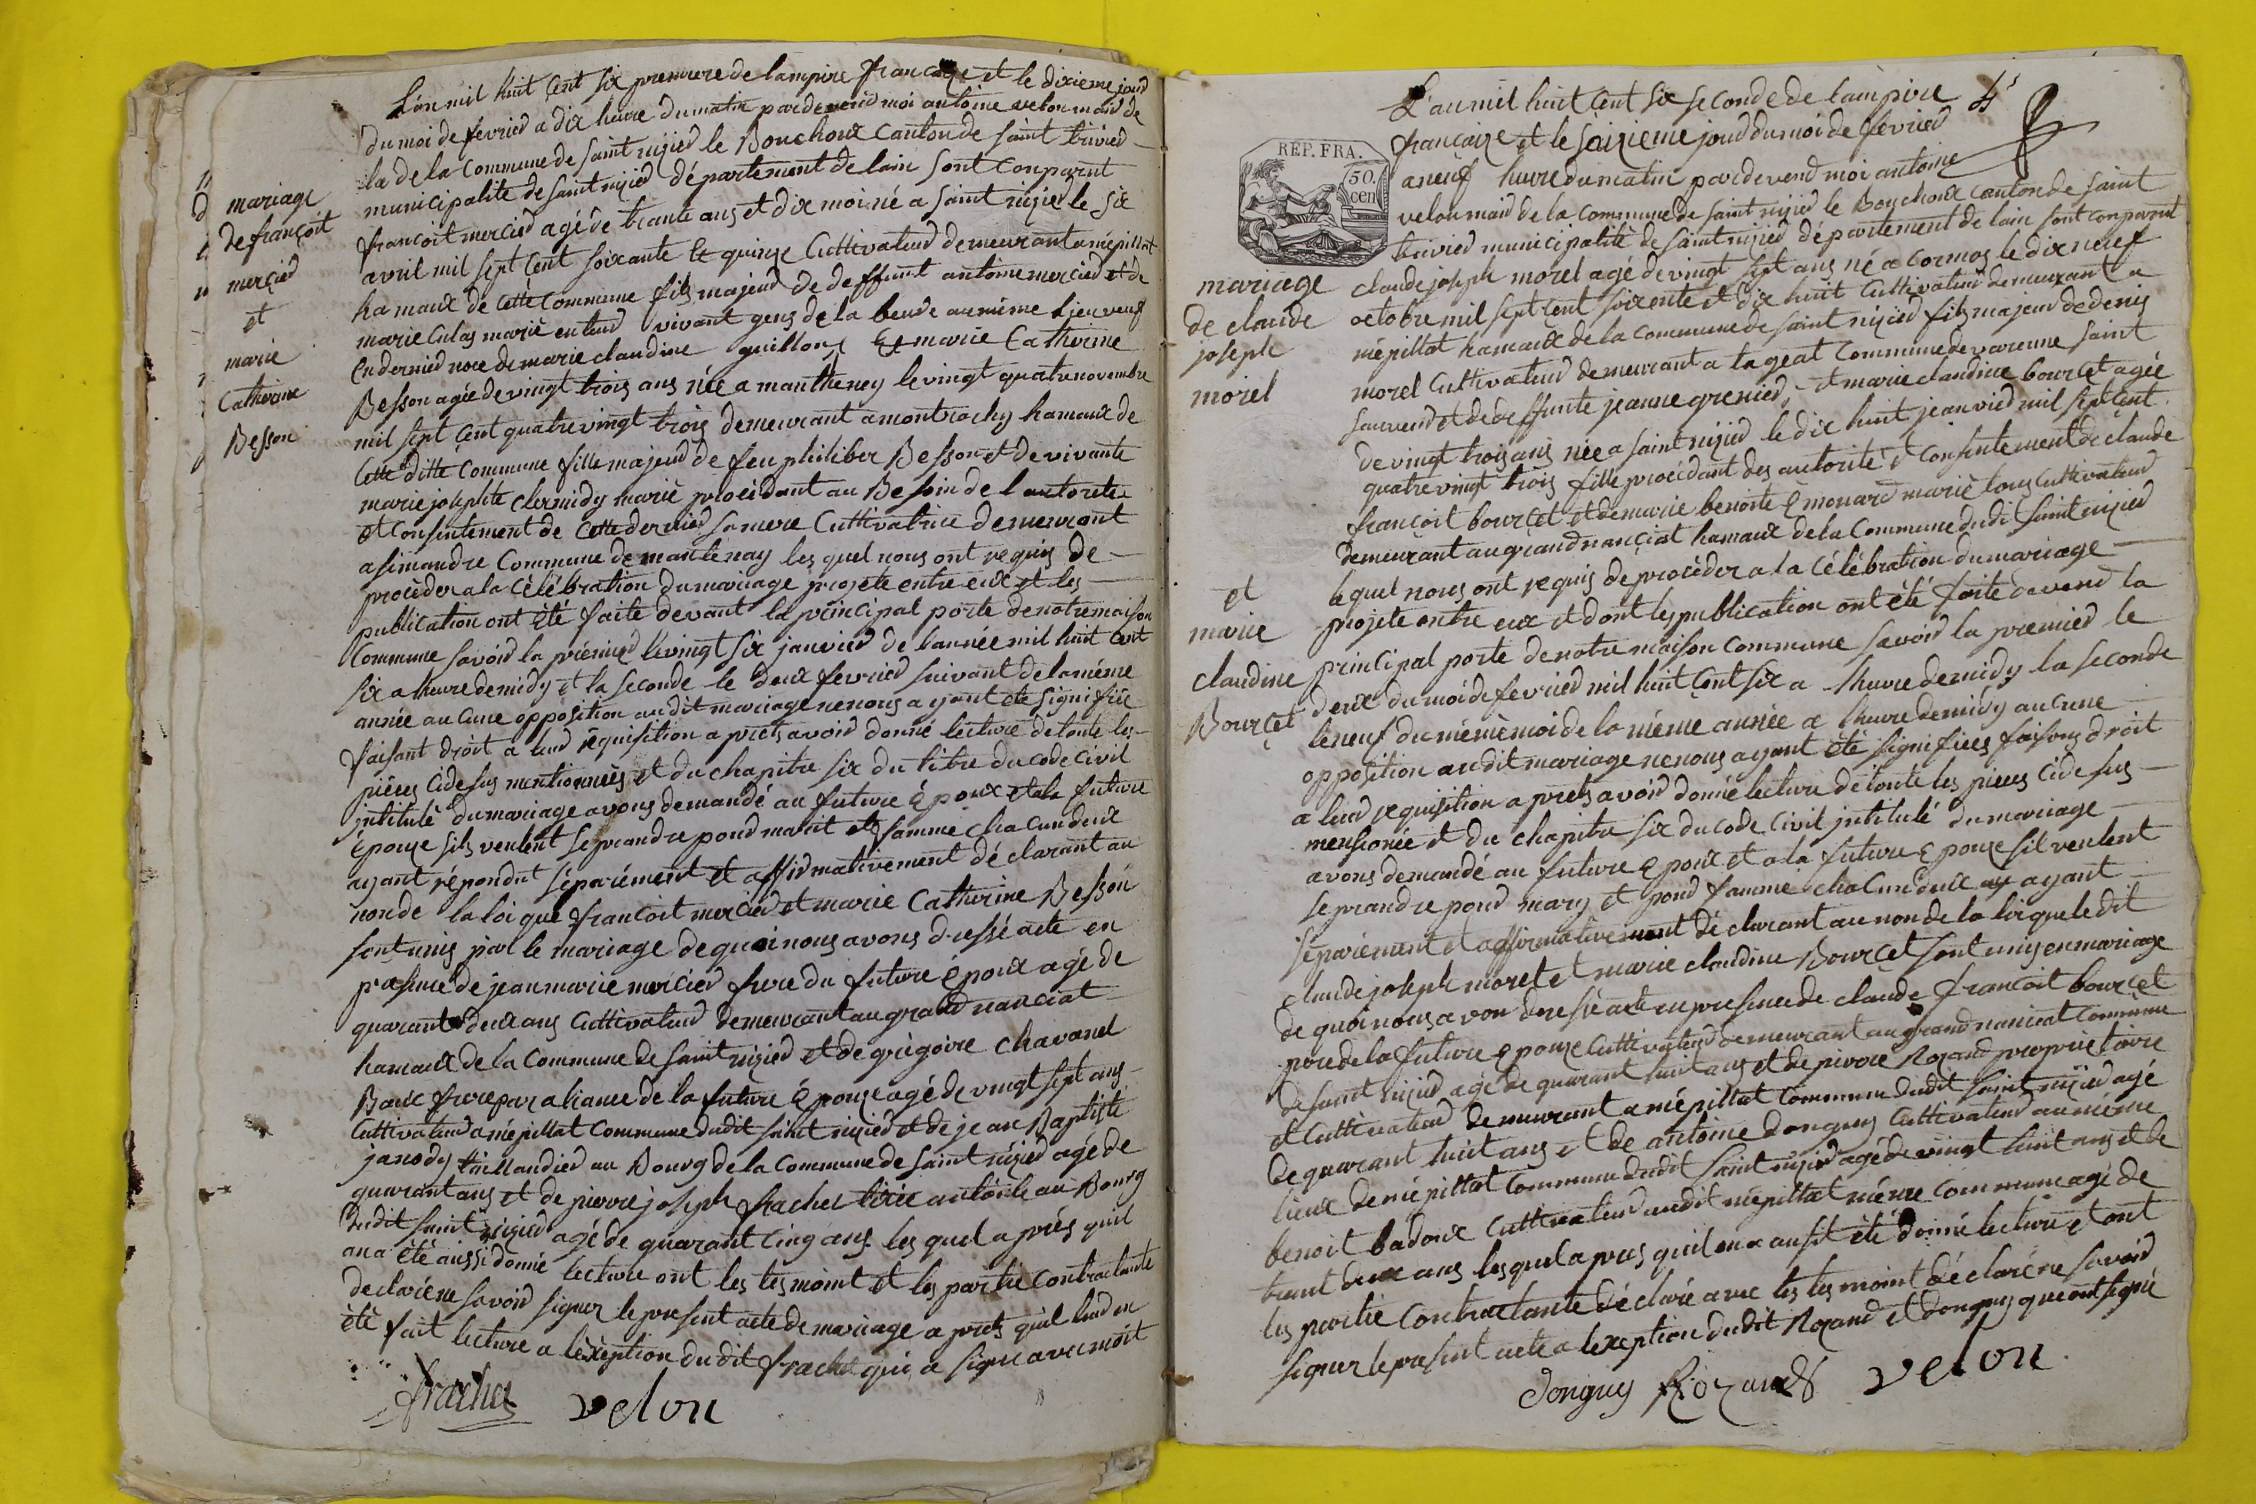 mariage
de françoit
mercied
et
marie
Catherine
Besson
L'an mil huit Cent six premiere de lampire française et le dixieme jour
du moi de fevried a dix heure du matin pardevend moi antoine velon maid de
la de la Commune de saint nizied le Bouchoux Canton de saint trivied
municipalité de saint nizied département de lain sont Conparut
françoit mercied agé de trante ans et dix moi né a saint nizied le six
avril mil sept Cent soixante et quinze Cultivateud demeurant a niépillat
hamaux de Cette Commune fils majeud de deffunt antoine mercied et de
marie Culas marié en leud vivant gens de la beude au même Lieu veuf
en dernied noce de marie claudine guillons Et marie Catherine
Besson agée de vingt trois ans née a mantheney le vingt quatre novembre
mil sept Cent quatre vingt trois demeurant a montrachy hamaux de
Cette ditte Commune fille majeud de feu philiber Besson et de vivante
marie josephte clermidy marié procédant au Besoin de l'autorité
et Consintement de Cette dernied sa mere Cultivatrice demeurant
a simandre Commune de mantenay les quel nous ont requis de
procéder a la Célébration du mariage projeté entre eux et les
publication ont été faite devant la principal porte de notre maison
Commune savoid la premied le vingt six janvied de l'année mil huit Cent
six a heure de midy et la seconde le deux fevried suivant de la même
année aucune opposition au dit mariage ne nous ayant été signifiée
faisant droit a leud réquisition a prets avoid donné lecture de toute les
pièces cide sus mentionnées et du chapitre six du titre du code Civil
intitulé du mariage avons demandé au future époux et ala future
épouze sils veulent se prandre poud marit et famme chacun deux
ayant répondut séparément et affirmativement déclarant au
non de la loi que françoit mercied et marie Catherine Besson
sont unis par le mariage de quoi nous avons dressé acte en
présence de jean marie mercied frere du future époux agé de
quarante deux ans Cultivateud demeurant au grand nanciat
hamaux de la Commune de saint nizied et de grégoire chavanel
Baux frere par aliance de la future épouze agé de vingt sept ans
Cultivateud a niépillat Commune dudit saint nizied et de jean Baptiste
janody taillandied au Bourg de la Commune de saint nizied agé de
quarant ans et de pierre joseph frachet au Bourg
dudit saint nizied agé de quarant cinq ans les quel a près quil
an a été aussi donné lecture ont les tesmoint et les partie Contractante
declaré ne savoid signer le present acte de mariage a prets quil leud en
été fait lecture a l'exéption du dit frachet qui a signé avec moit
frachet velon
4
REP. FRA.
50.
cen
mariage
de claude
joseph
morel
et
marie
claudine
Bourcet
L'an mil huit Cent six seconde de lampire
française et le seizieme joud du moi de fevried
a neuf heure du matin pardevend moi antoine
velon maid de la Commune de saint nizied le Bouchoux canton de saint
trivied municipalité de saint nizied département de lain sont conparut
claude joseph morel agé de vingt sept ans né a Cormos le dix neuf
octobre mil sept Cent soixante et dix huit Cultivateud demeurant a
niépillat hamaux de la Commune de saint nizied fils majeur de denis
morel Cultivateud demeurant a lageat Commune de varenne saint
sauveud et de deffunte jeanne grenied, et marie claudine bourcet agée
de vingt trois ans née a saint nizied le dix huit jeanvied mil sept Cent
quatre vingt trois fille procédant des autorité et Consintement de claude
françoit bourcet et de marie benoite émonard marié tous Cultivateud
demeurant au grand nanciat hamaux de la Commune du dit saint nizied
le quel nous ont requis de procéder a la Célébration du mariage
projeté entre eux et dont les publication ont été faite devend la
principal porte de notre maison Commune savoid la premied le
deux du moi de fevried mil huit Cent six a lheure de midy la seconde
le neuf du même moi de la même année a lheure de midy aucune
opposition au dit mariage ne nous ayant été signifiées faisons droit
a leud requisition a prets avoid donné lecture de toute les pieces cide sus
mensionée et du chapitre six du code Civil intitulé du mariage
avons demandé au future époux et a la future épouze sil veulent
se prandre poud mary et poud famme chacun deux ay ayant
séparément et affirmativement déclarant au non de la loi que le dit
claude joseph morel et marie claudine Bourcet sont unis en mariage
de quoi nous avon dressé acte en presence de claude françoit bourcet
pere de la future épouze Cultivateud demeurant au grand nanciat Commune
de saint nizied agé de quarant huit ans et de pierre Rozand propriétaire
et Cultivateud demeurant a niépillat Commune dudit saint nizied agé
de quarant huit ans et de antoine donguy Cultivateud au même
lieux de niépillat Commune dudit saint nizied agé de vingt huit ans et de
benoit badoux Cultivateud au dit niépillat même Commune agé de
trant deux ans les quel a pres quil en a ausit été donné lecture et ont
les partie Contractante déclaré avec les tesmoint déclaré ne savoid
signer le present acte a lexeption du dit Rozand et donguy qui ont signé
donguy Rozand velon